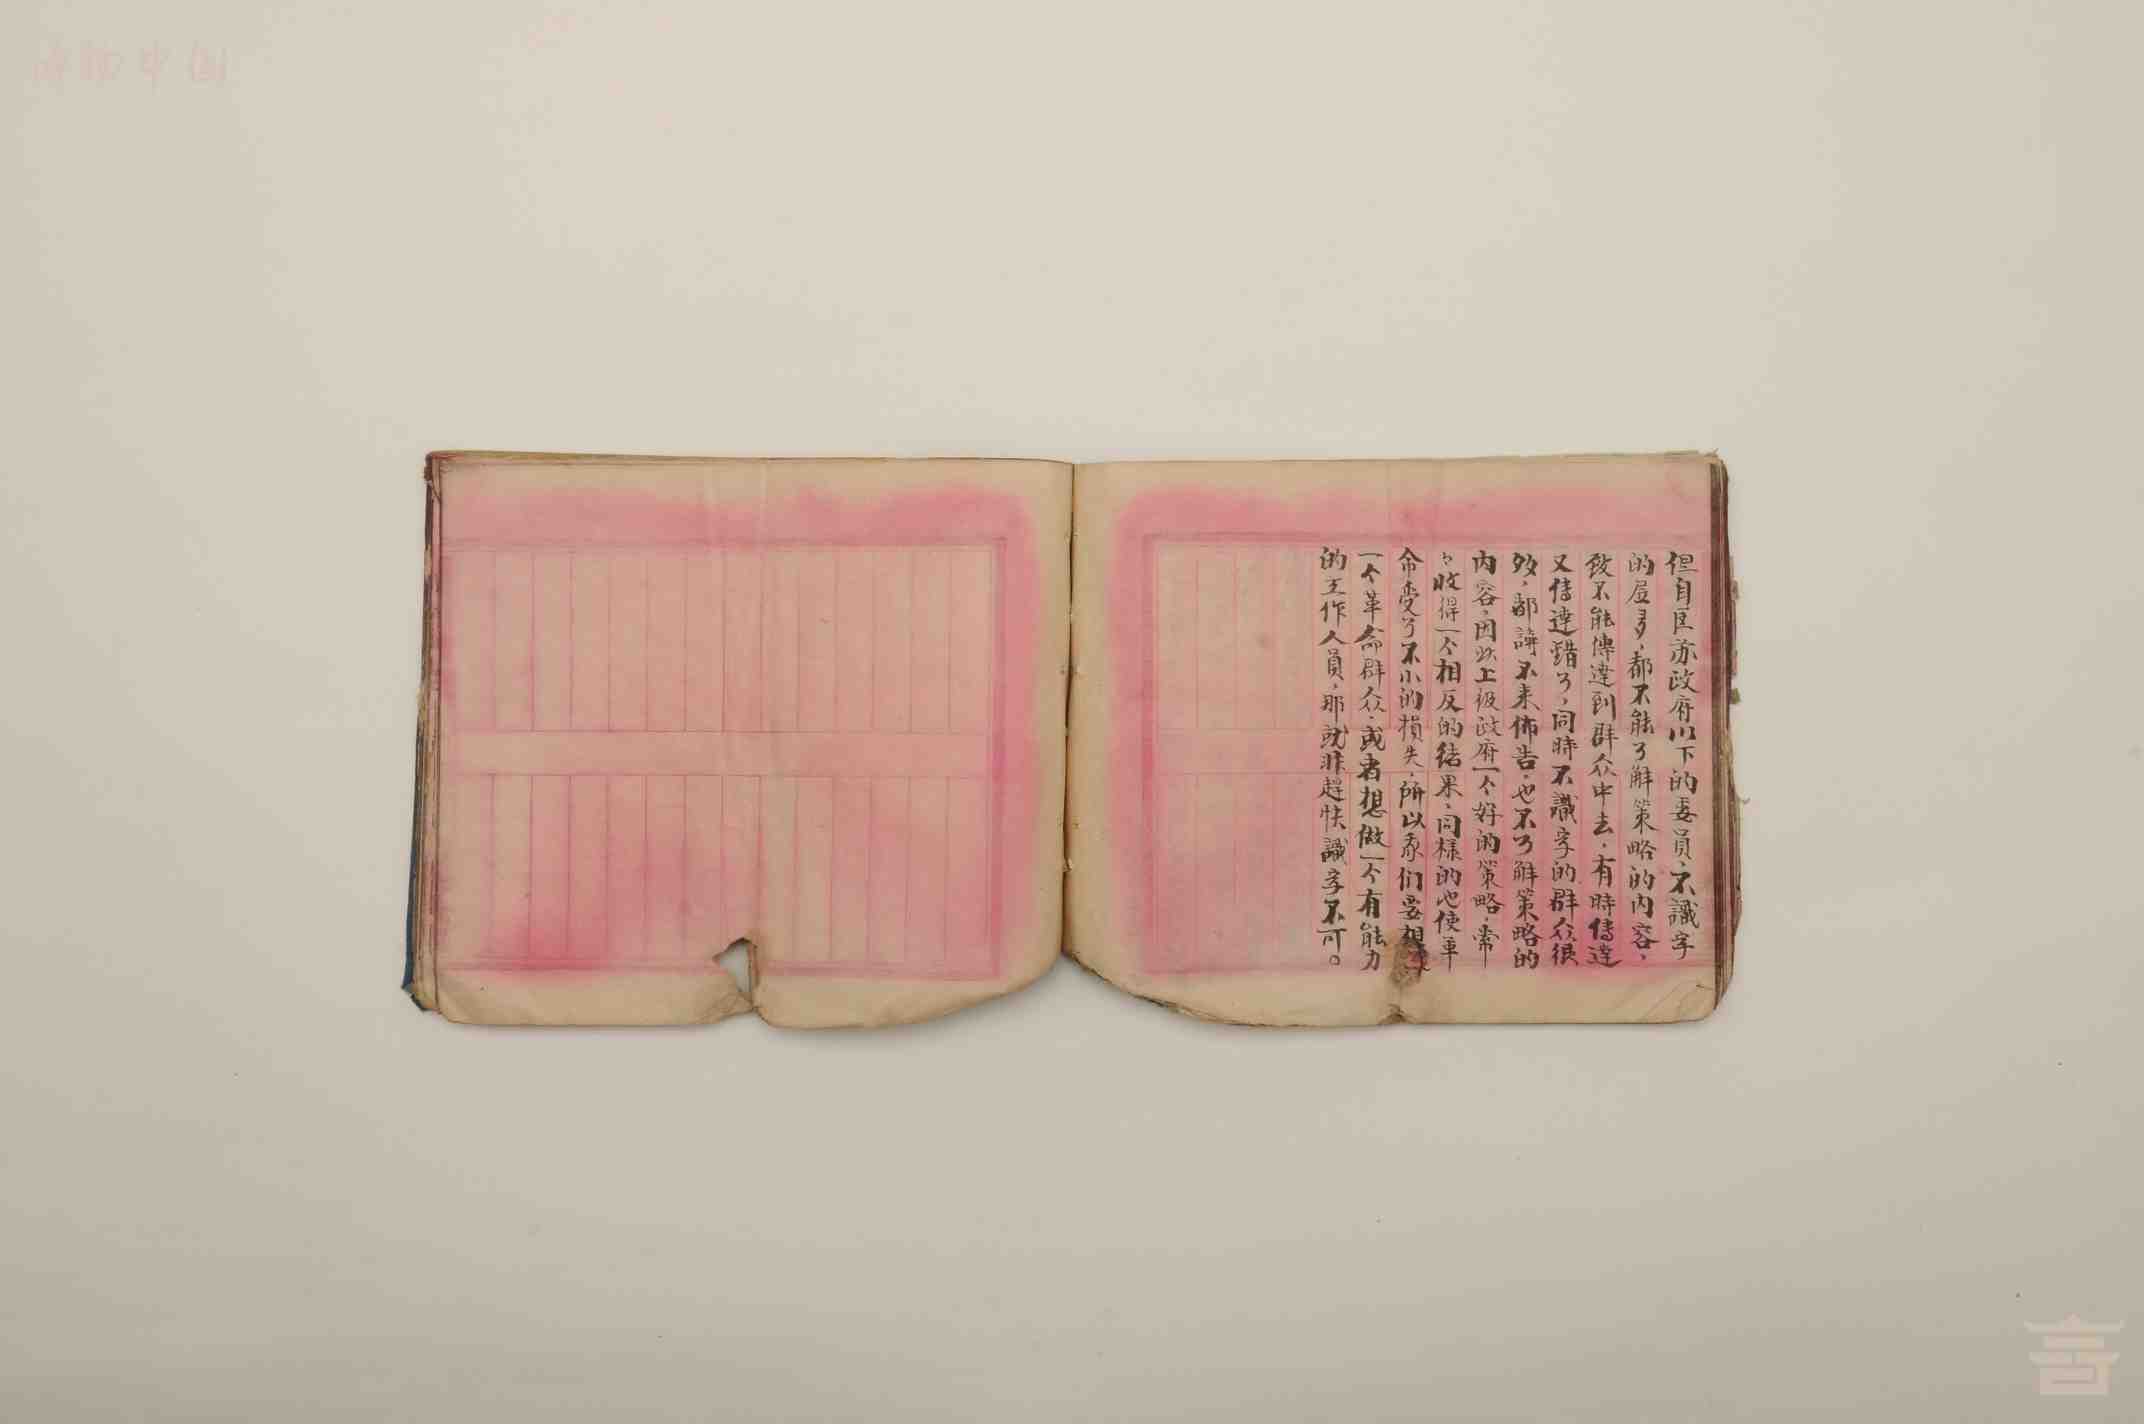 但自区苏政府以下的委員，不識字
的居多，都不能了解策略的内容，
致不能傳達到群众中去，有時傳達
又傳達錯了，同時不識字的群众很
多，都講不来佈告，也不了解策略的
内容，因此上级政府一个好的策略，常
々收得一个相反的结果，同樣的也使革
命受了不小的損失，所以我们要想
一个革命群众，或者想做一个有能力
的工作人員，那就非趕快識字不可。